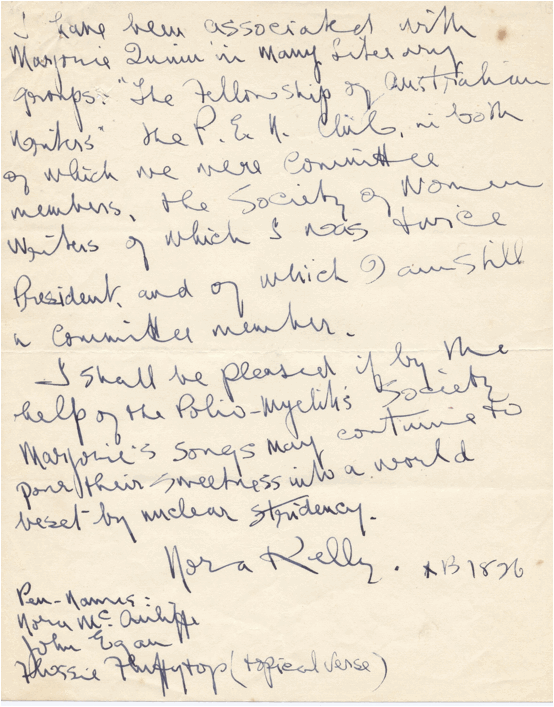 I have been associated with
Marjorie Quinn in many literary
groups: "The Fellowship of Australian
Writers" the P.E.N. Club, in both
of which we were committee
members, the Society of Women
Writers of which I was twice
President, and of which I am still
a committee member.
I shall be pleased if by the
help of the Polio-Myelitis Society
Marjorie's songs may continue to
pour their sweetness into a world
beset by nuclear stridency.
Nora Kelly. XB1826
Pen-Names:
Nora McAuliffe
John Egan
Flossie Fluffytop (topical verse)